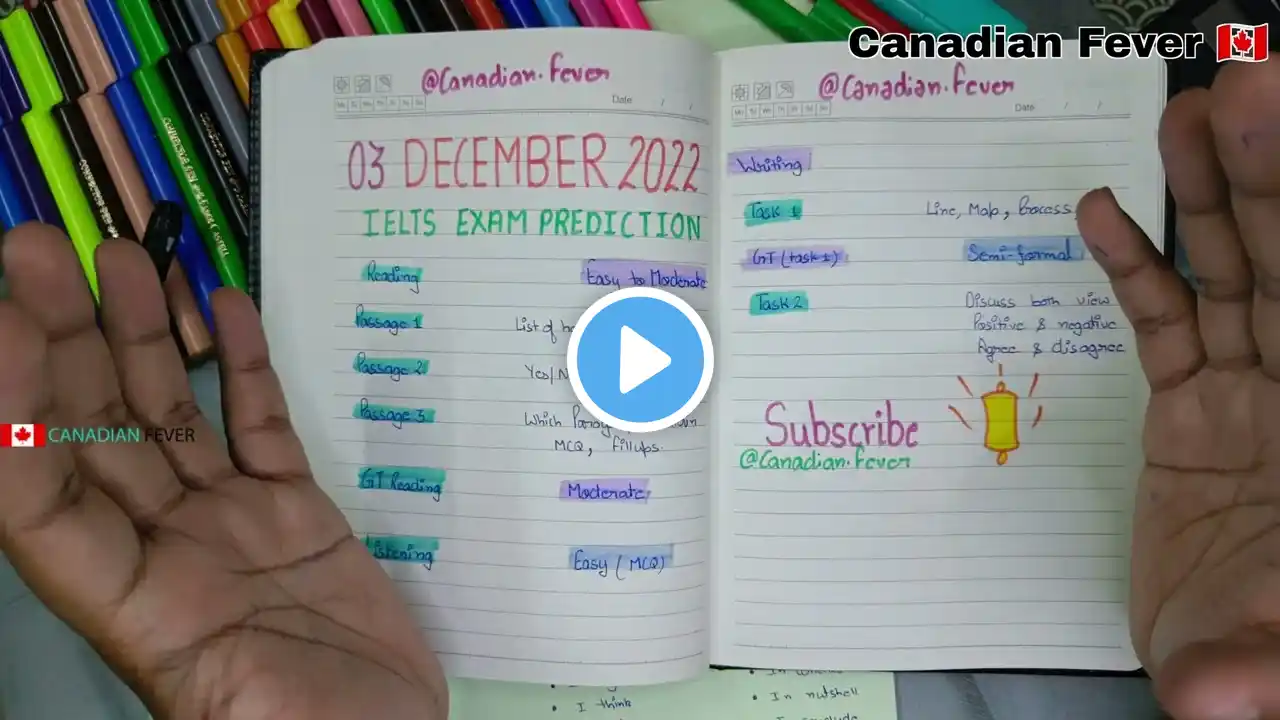 Canadian Fever
@Canadian.Fever
Date / /
03 DECEMBER 2022
IELTS EXAM PREDICTION
Reading Easy to Moderate
Passage 1 List of
Passage 2 Yes/
Passage 3 Which
MCQ, fillups.
GT Reading Moderate
Listening Easy (MCQ)
@Canadian.fever
Date / /
Writing
Task 1 Line, Map, Process
GT (task 1) Semi-formal
Task 2 Discuss both view
Positive & negative
Agree & disagree
Subscribe
@Canadian.fever
CANADIAN FEVER
• I think
• In nutshell